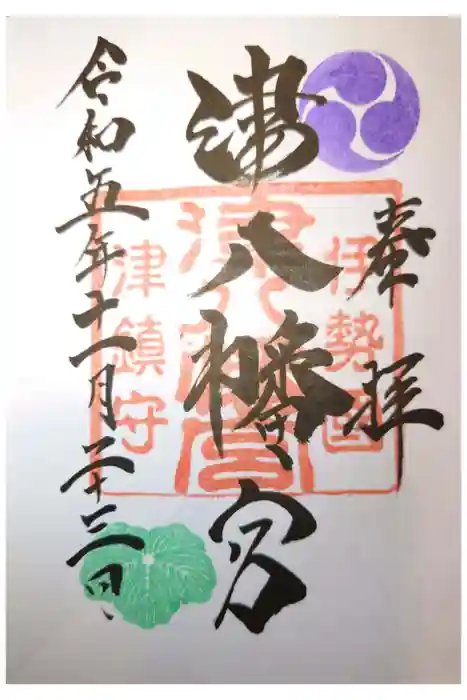 奉拝
伊勢國
津八幡宮
津八幡宮
津鎮守
令和五年十一月二十三日